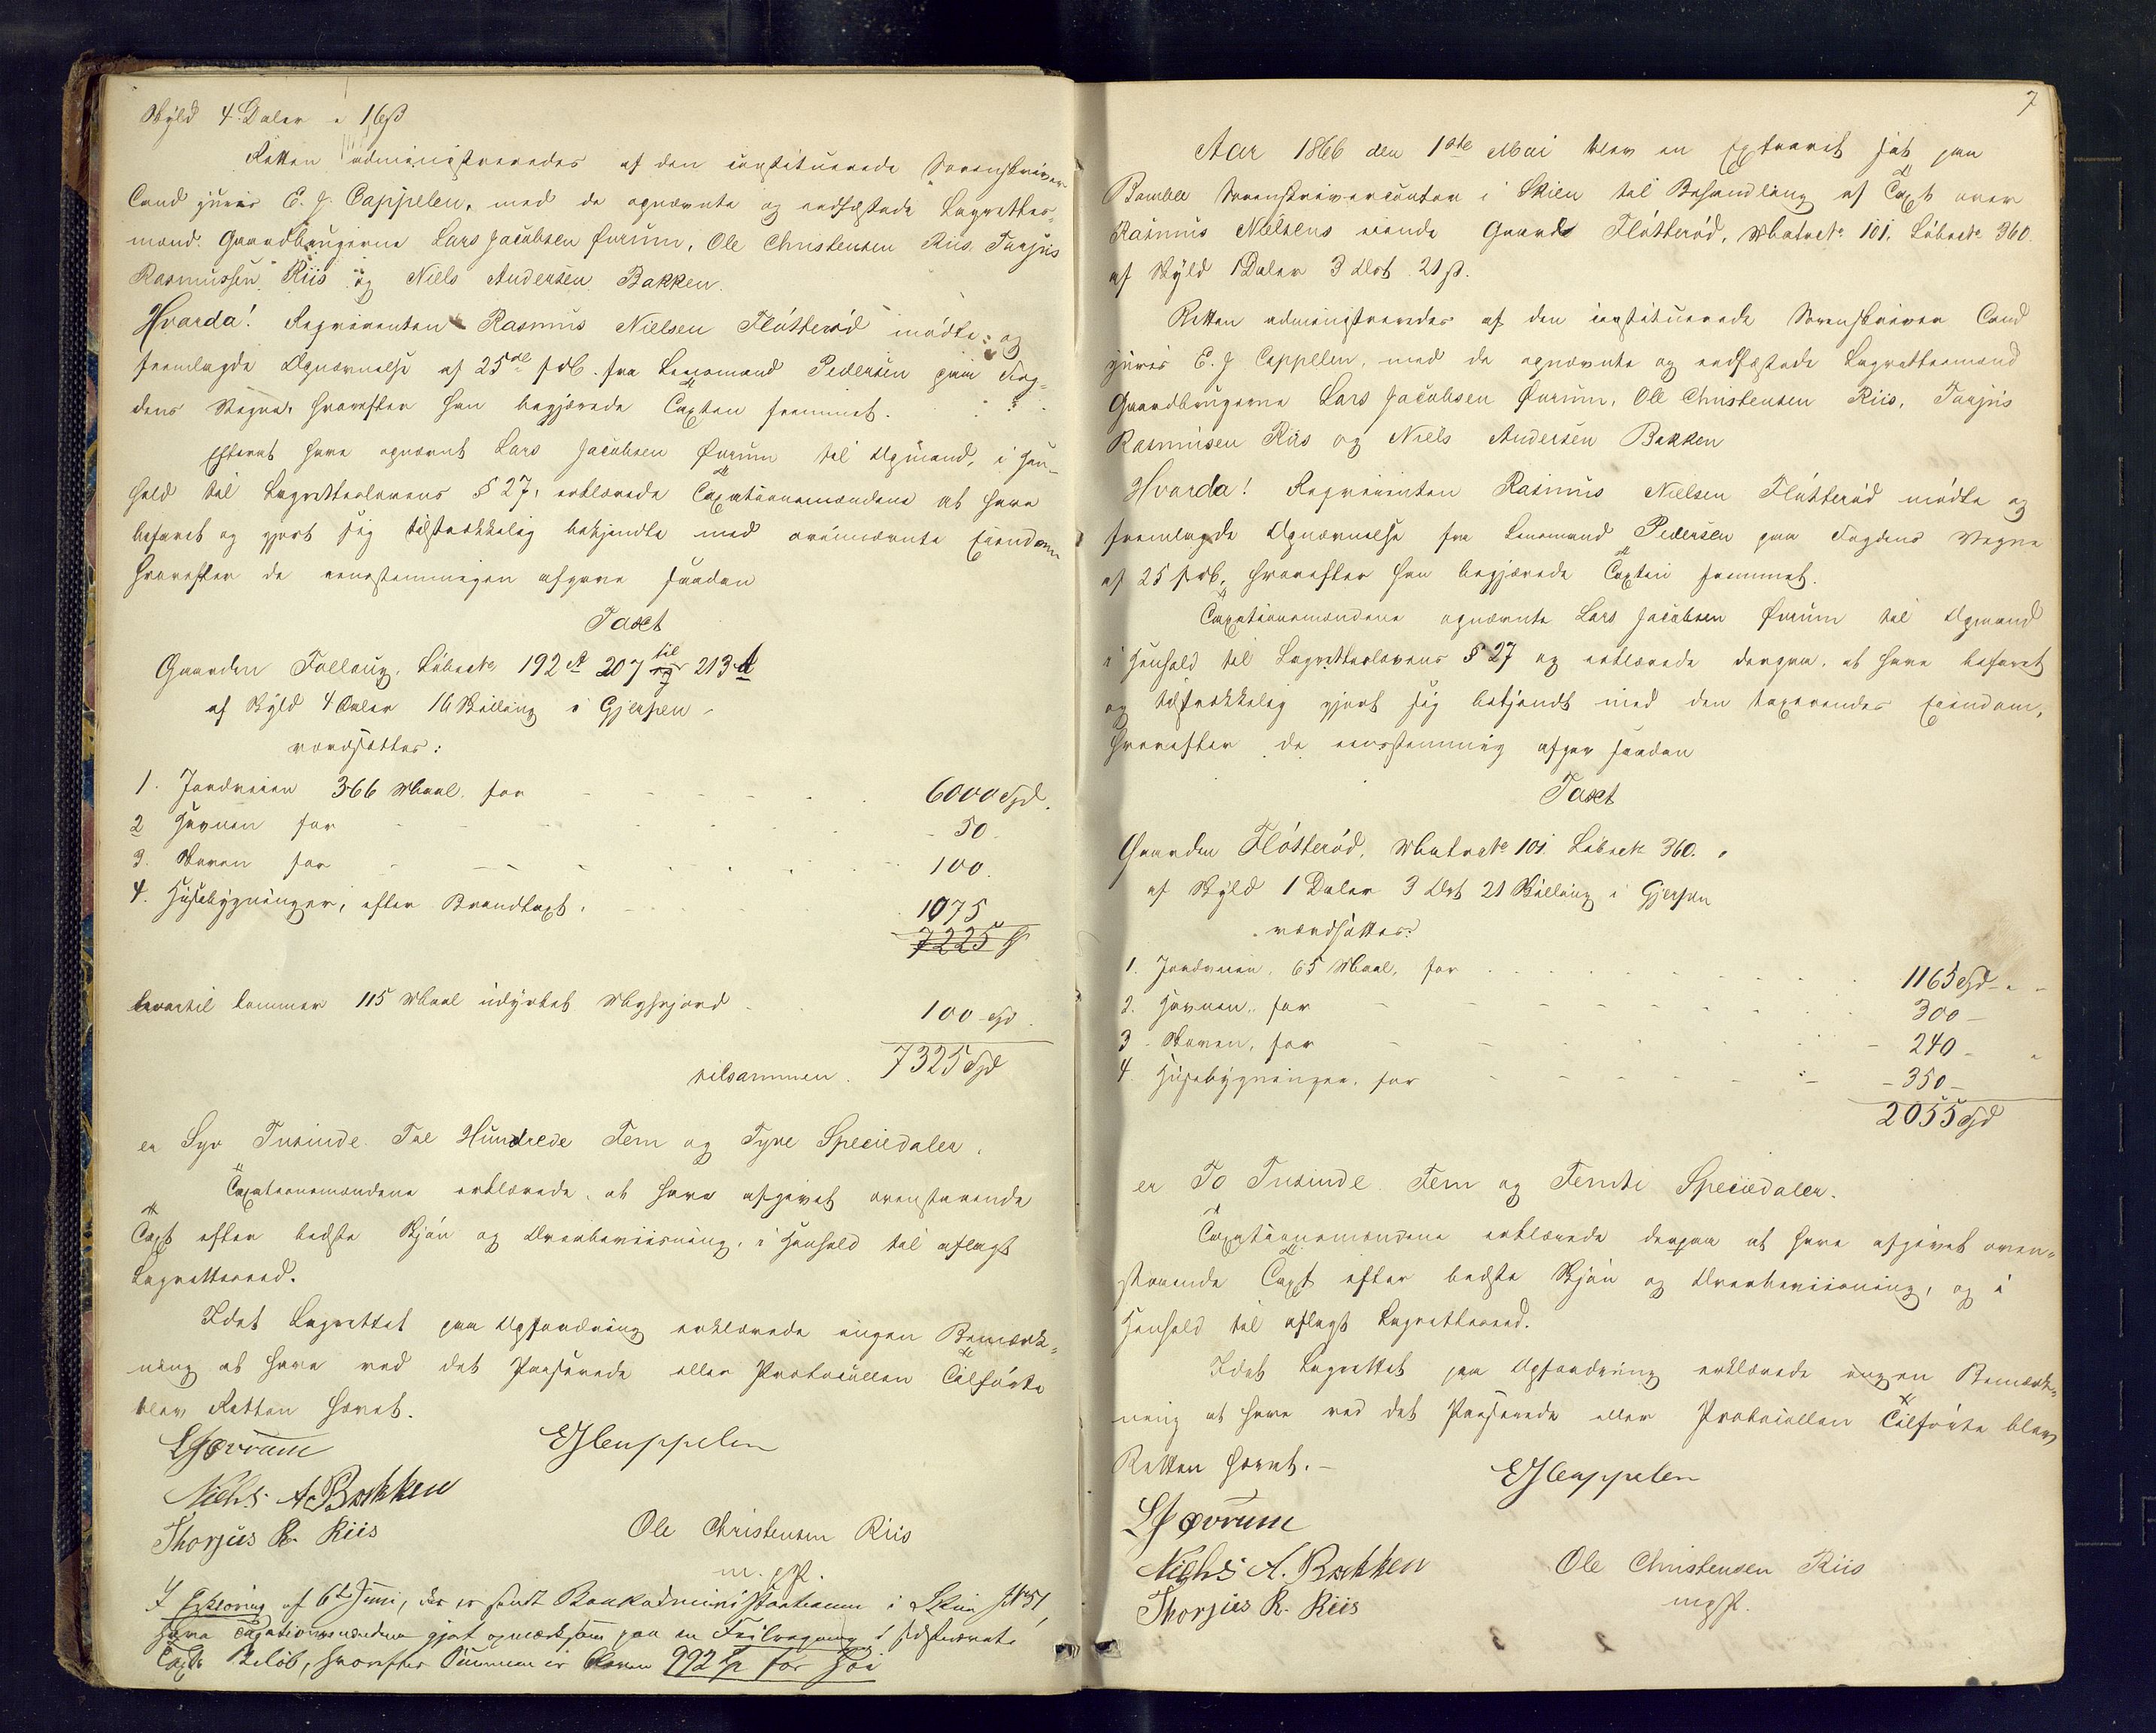 Skyld 4 Daler " 16 ß
Retten administreredes af den constituerede Sorenskriver
Cand juris E. J. Cappelen, med de opnævnte og eedfæstede Lagrettes-
mænd: Gaardbrugerne Lars Jacobsen Øvrum, Ole Christensen Riis, Tarjus
Rasmussen Riis og Niels Andersen Bakken.
Hvorda! Reqvirenten Rasmus Nielsen Flötteröd mödte og
fremlagde Opnævnelse af 25de feb. fra Lensmand Pedersen paa Fog-
dens Vegne, hvorefter han begjærede Taxten fremmet.
Efterat have opnævnt Lars Jacobsen Øvrum til Opmand, i Hen-
hold til Lagretteslovens § 27, erklærede Taxationsmændene at have
befaret og gjort sig tilstrækkelig bekjendte med ovennævnte Eiendom
hvorefter de eensstemmigen afgave saadan
Taxt
Gaarden Follaug, Löbeno 192 A 207 til 213 A
af Skyld 4 Daler 16 Skilling i Gjerpen
værdsættes:
1. Jordveien 366 Maal for 6000 Spd.
2 Havnen for 50.
3. Skoven for 100.
4. Husebygninger, efter Brandtaxt. 1075
7225
hvortil kommer 115 Maal udyrket Myhrjord 100 Spd.
tilsammen. 7325 Spd
er Syv Tusinde Tre Hundrede Fem og Tyve Speciedaler.
Taxationsmændene erklærede, at have afgivet ovenstaaende
Taxt efter bedste Skjön og Overbeviisning, i Henhold til aflagt
Lagretteseed.
Idet Lagrettet paa Opfordring erklærede ingen Bemærk-
ning at have ved det Passerede eller Protocollen Tilförte
blev Retten hævet.
LJøvrum EJCappelen
Niels A. Bakken
Thorjus R. Riis Ole Christensen Riis
m. p. P.
I Erklæring af 6te Juni, der er sendt Bankadministrationen i Skien No 51,
have Taxationsmændene gjort opmærksom paa en Feilregning i sidstnævnte
Taxts Belöb, hvorefter Summen er bleven 992 Sp for höi
7
Aar 1866 den 1ste Mai blev en Extraret sat paa
Bamble Sorenskrivercontor i Skien til Behandling af Taxt over
Rasmus Nielsens eiende Gaard Flötteröd, Matrno 101, Löbeno 360.
af Skyld 1 Daler 3 Ort 21 ß.
Retten administreredes af den constituerede Sorenskriver Cand
juris E. J Cappelen, med de opnævnte og eedfæstede Lagrettesmænd
Gaardbrugerne Lars Jacobsen Øvrum, Ole Christensen Riis, Tarjus
Rasmusen Riis og Niels Andersen Bakken
Hvorda! Reqvirenten Rasmus Nielsen Flötteröd mödte og
fremlagde Opnævnelse fra Lensmand Pedersen paa Fogdens Vegne
af 25 feb., hvorefter han begjærede Taxten fremmet.
Taxationsmændene opnævnte Lars Jacobsen Øvrum til Opmand
i Henhold til Lagretteslovens § 27 og erklærede derpaa, at have befaret
og tilstrækkelig gjort sig bekjendt med den taxerendes Eiendom,
hvorefter de eensstemmig afgav saadan
Taxt
Gaarden Flötteröd, Matrno 101 Löbeno 360.
af Skyld 1 Daler 3 Ort 21 Skilling i Gjerpen
værdsættes:
1. Jordveien, 65 Maal, for 1165 Spd
2. Havnen, for 300
3 Skoven, for 240
4 Husebygningen, for 350
2055 Spd
er To Tusinde Fem og Femti Speciedaler.
Taxationsmændene erklærede derpaa at have afgivet oven-
staaende Taxt efter bedste Skjön og Overbeviisning, og i
Henhold til aflagt Lagretteseed.
Idet Lagrettet paa Opfordring erklærede ingen Bemærk-
ning at have ved det Passerede eller Protocollen Tilförte blev
Retten hævet.
EJCappelen
LJøvrum
Niels A. Bakken Ole Christensen Riis
Thorjus R. Riis mpP.